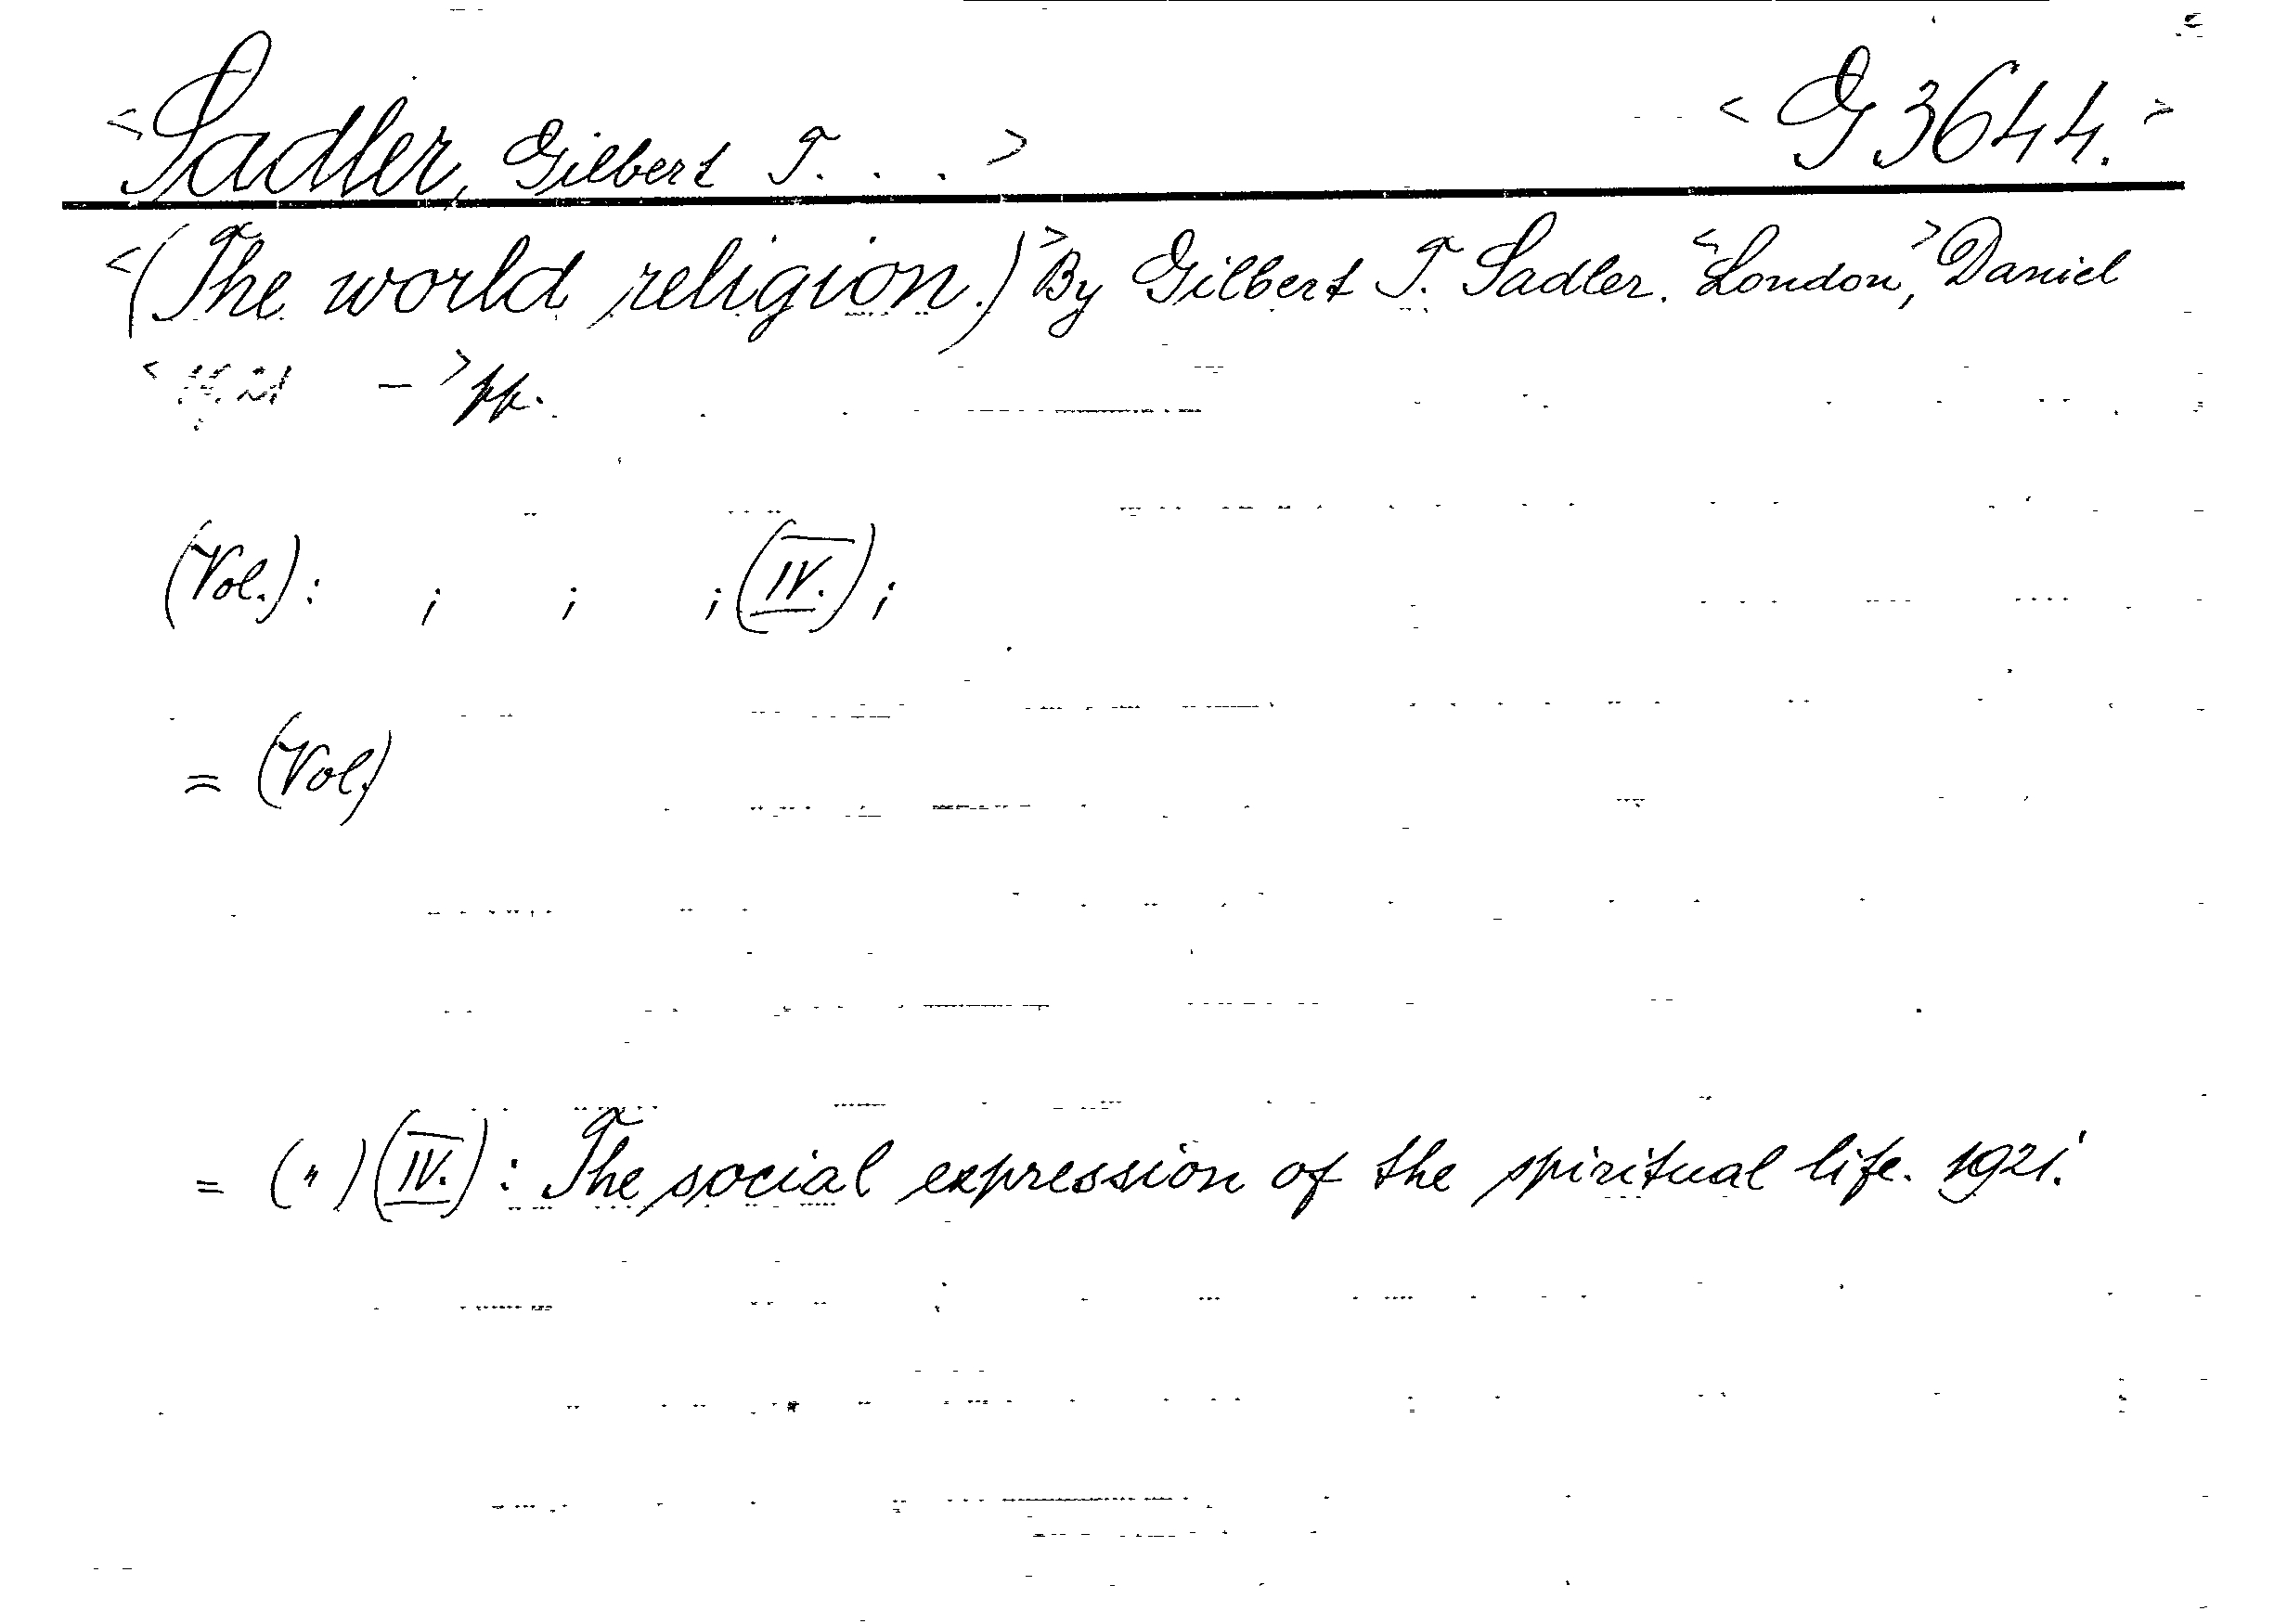 <Sadler, Gilbert T. . .> <G 3644.>
<(The world religion.)> By Gilbert T. Sadler. <London,> Daniel
< – > pp.
(Vol.): ; ; ; (IV.);
= (Vol.)
= (") (IV.): The social expression of the spiritual life. 1921.